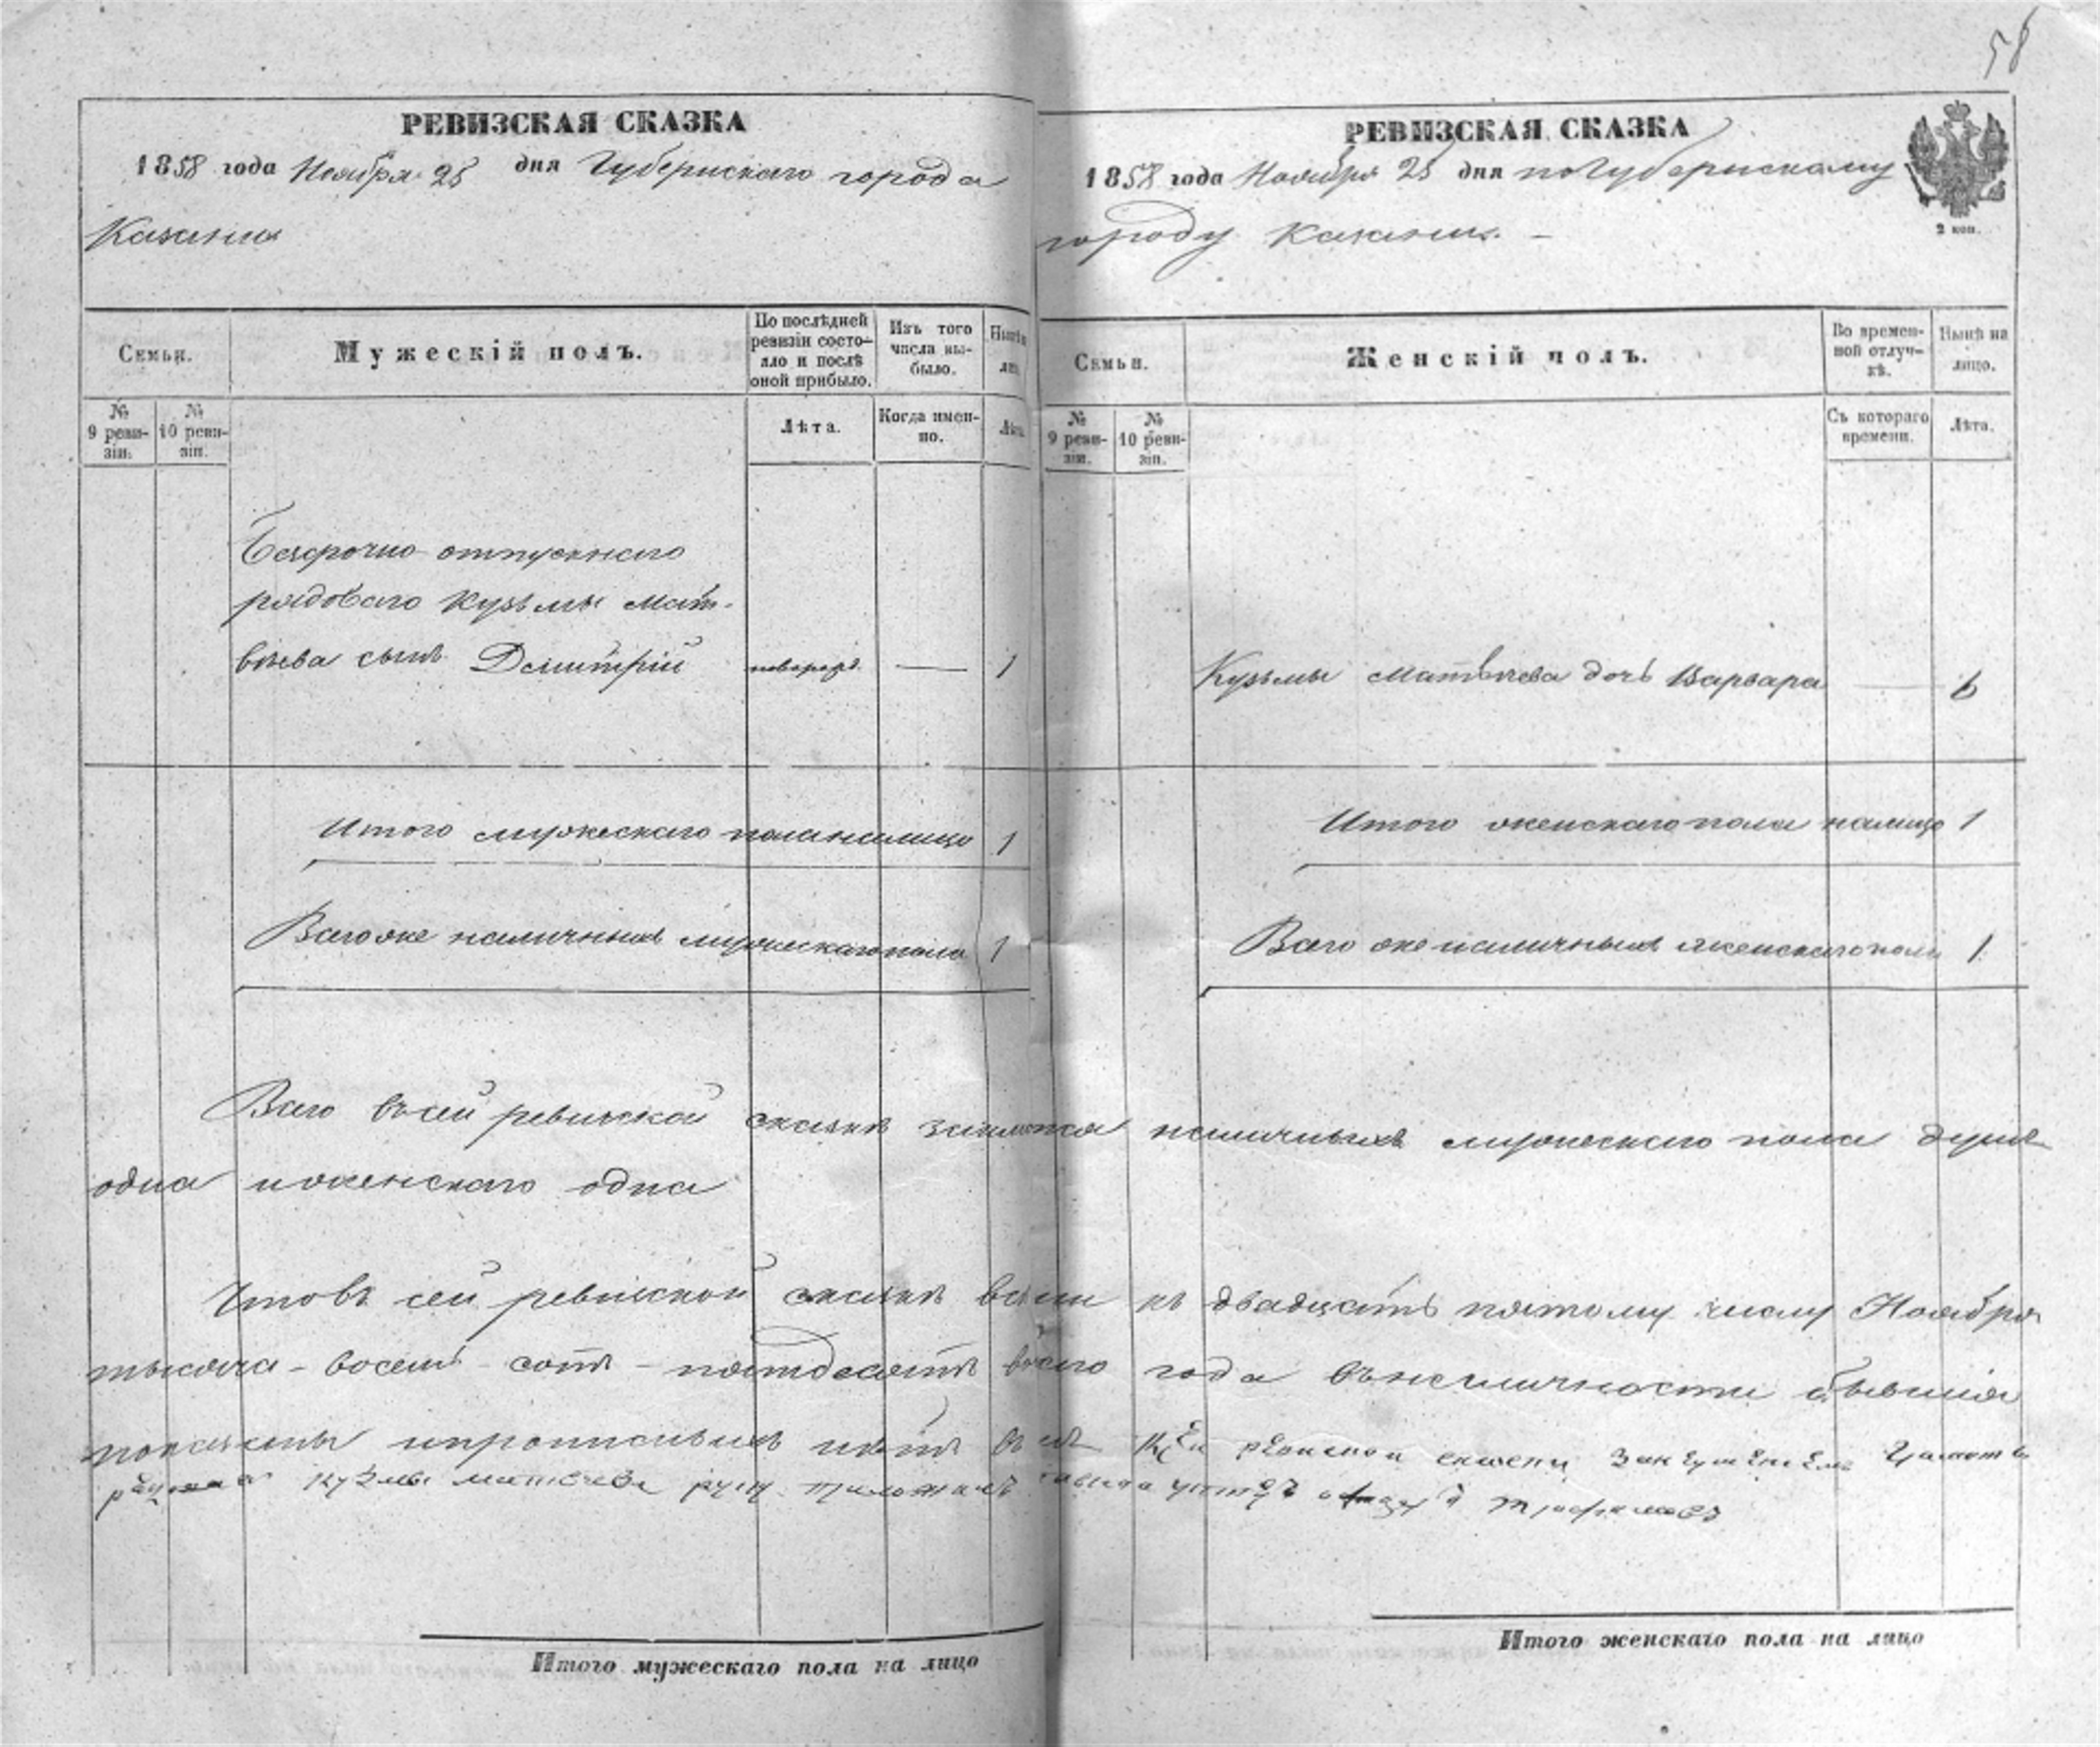 58
РЕВИЗСКАЯ СКАЗКА
1858 года Ноября 25 дня Губернскаго города
Казани
Семьи.
Мужескій полъ.
По послѣдней ревизіи состояло и послѣ оной прибыло.
Изъ того числа выбыло.
Нынѣ
№ 9 ревизіи.
№ 10 ревизіи.
Лѣта.
Когда именно.
Лѣта
Безсрочно отпускнаго
рядоваго Кузьмы Мат-
вѣева сынъ Дмитрій
новорож. — 1
Итого мужескаго пола налицо 1
Всего же наличныхъ мужескаго пола 1
РЕВИЗСКАЯ СКАЗКА
1858 года Ноября 25 дня по Губернскому
городу Казани. —
2 коп.
Семьи.
Женскій полъ.
Во временной отлучкѣ.
Нынѣ на лицо.
№ 9 ревизіи.
№ 10 ревизіи.
Съ котораго времени.
Лѣта.
Кузьмы Матвѣева дочь Варвара — 6
Итого женскаго пола налицо 1
Всего же наличныхъ женскаго пола 1
Всего въ сей ревизской сказкѣ наличныхъ мужескаго пола душъ
одна и женскаго одна
Что въ сей ревизской сказкѣ всѣ къ двадцать пятому числу Ноября
тысяча - восемь - сотъ - пятдесятъ года въ наличности бывшія
показаны и прописныхъ нѣтъ
Кузмы Матвѣева руку приложилъ
Итого мужескаго пола на лицо
Итого женскаго пола на лицо